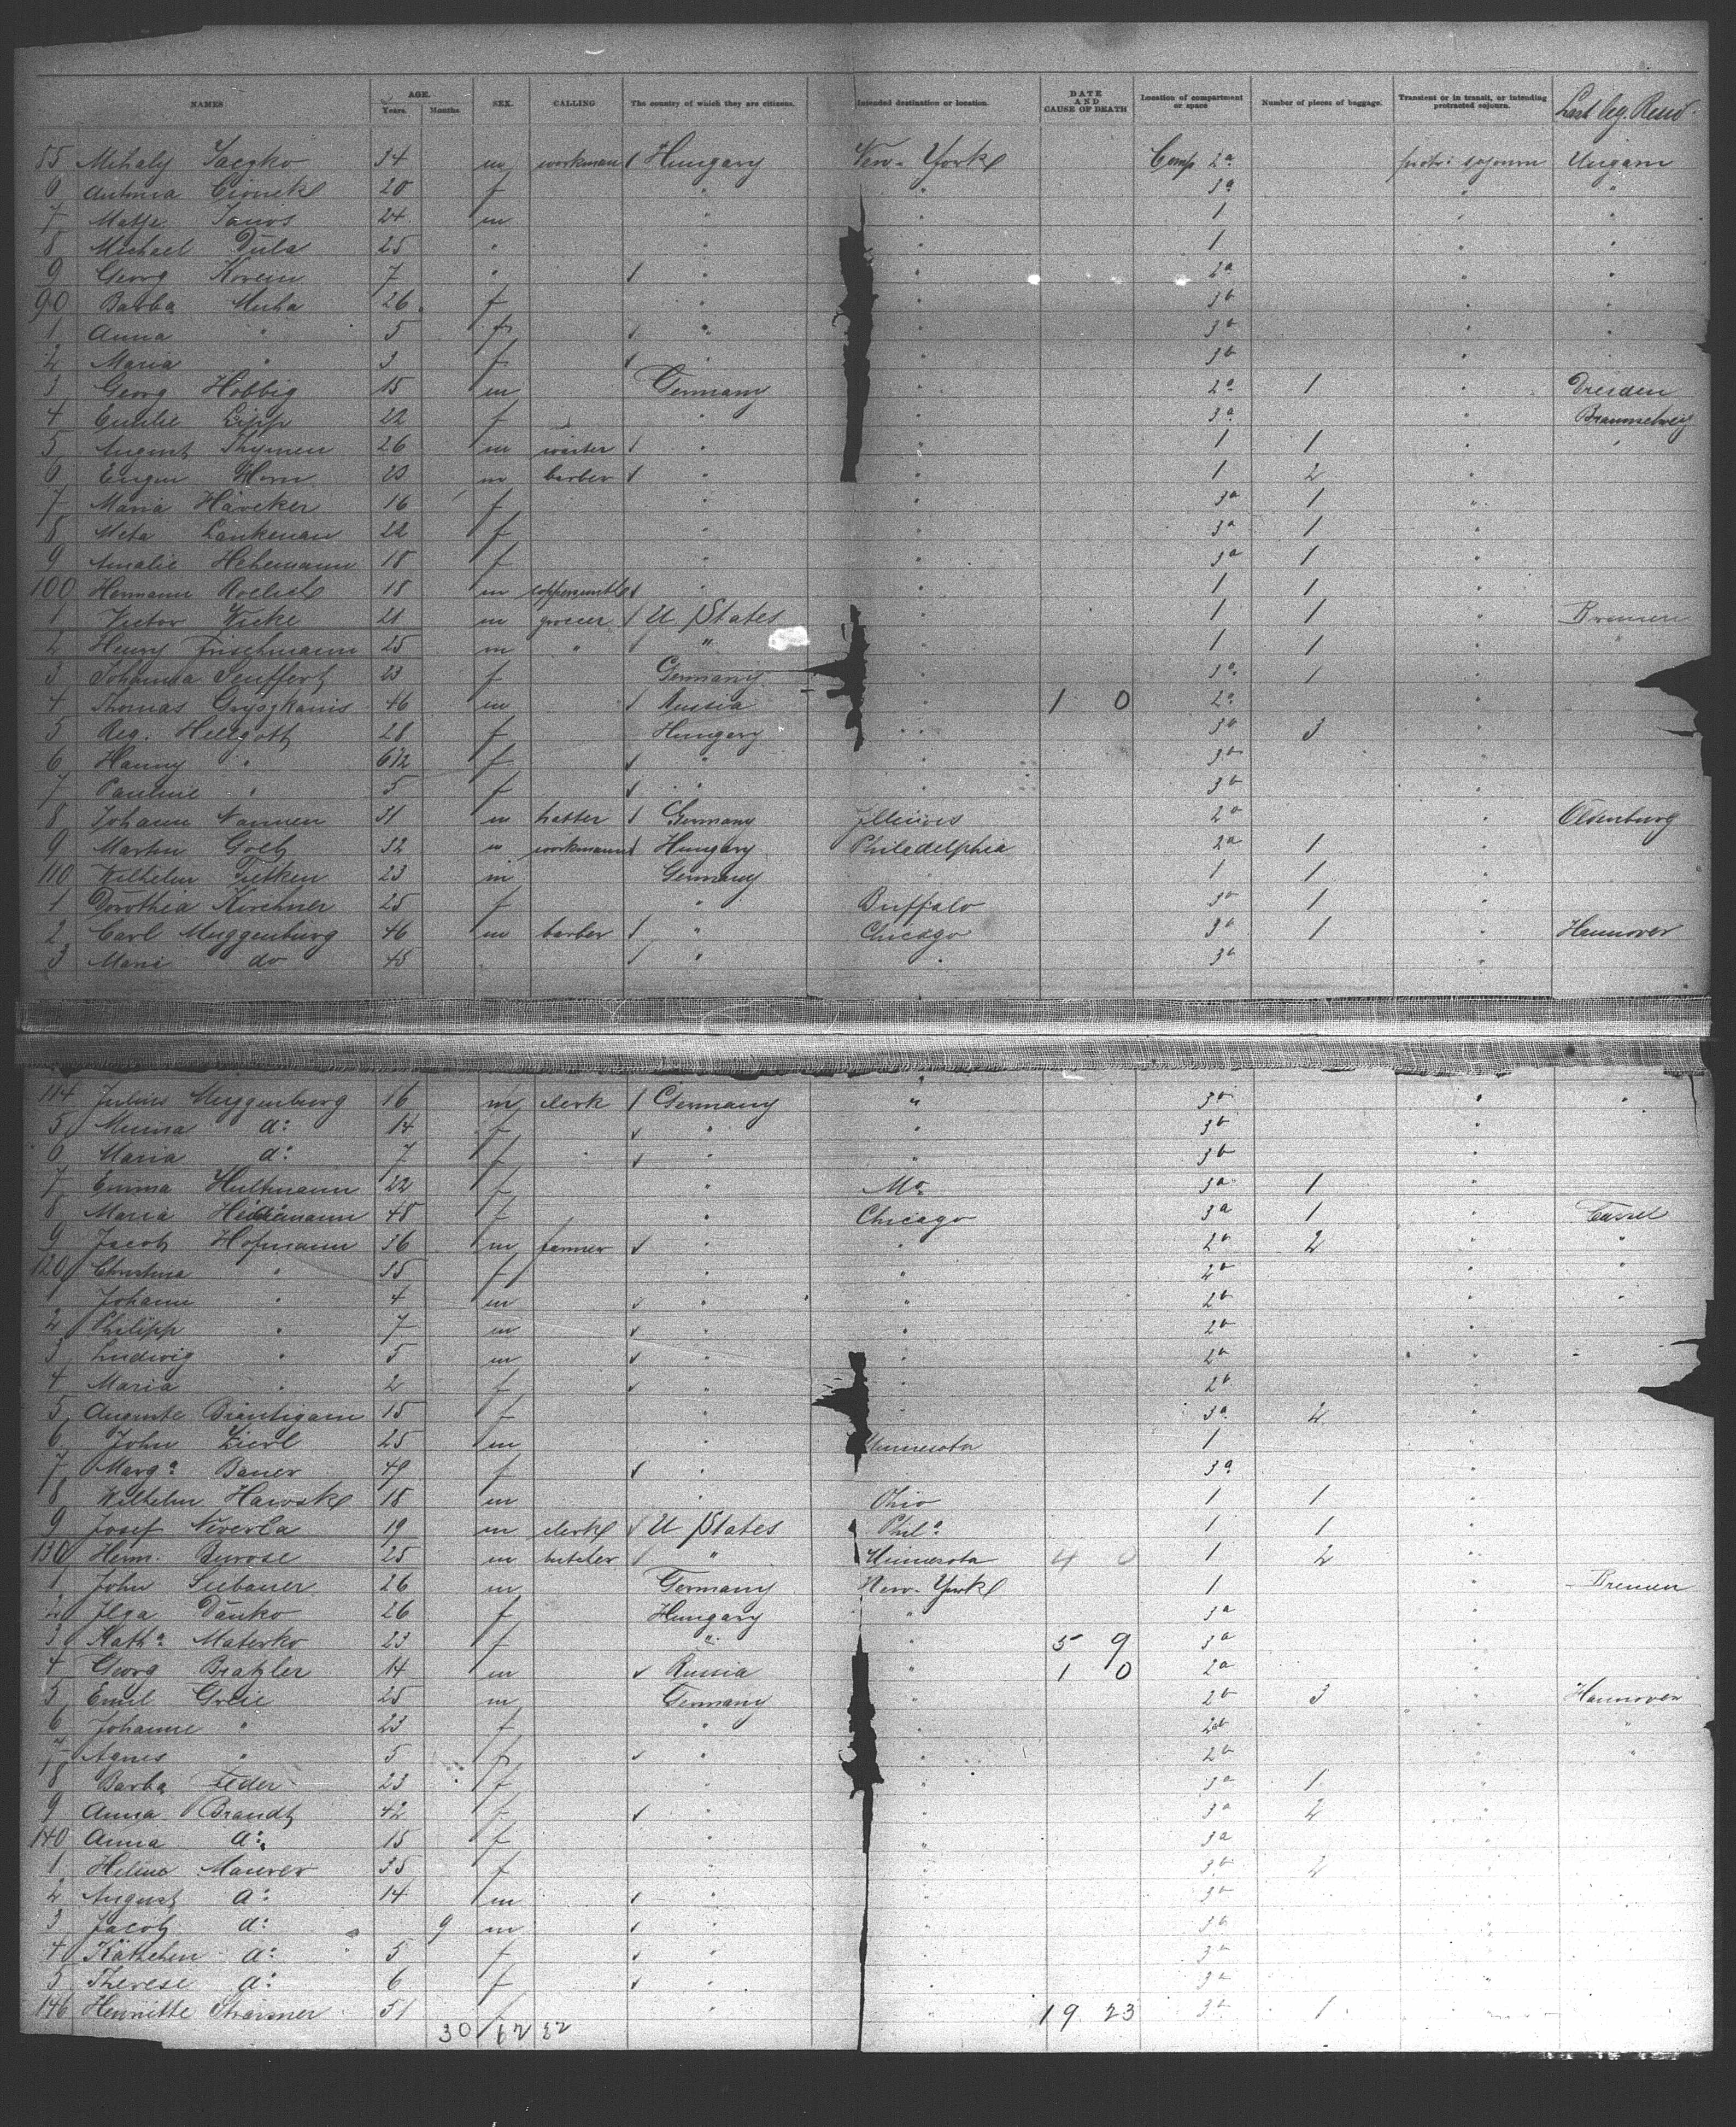 NAMES AGE. Years. Months. SEX. CALLING The country of which they are citizens. Intended destination or location. DATE AND CAUSE OF DEATH Location of compartment or space Number of pieces of baggage. Transient or in transit, or intending protracted sojourn. Last leg. Resid.
85 Mihaly 34 m workman / Hungary New-York Comp 2a protr: sojourn Ungarn
6 Antonia 20 f " " 3a " "
7 24 m " " 1 " "
8 Michael Dula 25 " " " 1 " "
9 Georg 7 " / " " 2a " "
90 Barba Muha 26 f " " 3b " "
1 Anna " 5 f v " " 3b " "
2 Maria " 3 f v " " 3b " "
3 Georg Hobbig 15 m Germany " 2a 1 " Dresden
4 Emilie Lipp 22 f " " 3a " Braunschweig
5 August Thymen 26 m waiter / " " 1 1 " "
6 Eugen Horn m barber / " " 1 2 "
7 Maria Häveker 16 f " " 3a 1 "
8 Meta Lankenau 22 f " " 3a 1 "
9 Amalie Hehemann 18 f " " 3a 1 "
100 Hermann 18 m coppersmith / " " 1 1 "
1 Victor Wicke 21 m grocer / U States " 1 1 " Bremen
2 Henry Frischmann 25 m " / " " 1 1 " "
3 Johanna Seuffert 23 f Germany " 3a 1 "
4 Thomas 46 m / Russia " 1 0 2a "
5 Reg. Hellgoth 28 f Hungary " 3b 3 "
6 Hanny " f v " " 3b "
7 Pauline " 5 f v " " 3b "
8 Johann Nannen 31 m hatter / Germany Illinois 2a " Oldenburg
9 Martin Goltz 32 m workmann / Hungary Philadelphia 2a 1 "
110 Wilhelm Fietken 23 m Germany " 1 1 "
1 Dorothea Kirchner 25 f " Buffalo 3a 1 "
2 Carl Muggenburg 46 m barber / " Chicago 3b 1 " Hannover
3 Marie do 45 / " " 3b "
114 Julius Muggenburg 16 m clerk / Germany " 3b " "
5 Minna d: 14 f v " " 3b "
6 Maria d: 7 f v " " 3b "
7 Emma Hultmann 22 f " Mo. 3a 1 "
8 Maria 48 f " Chicago 3a 1 " Cassel
9 Jacob Hofmann 36 m farmer v " " 2b 2 " "
120 Christina " 35 f " " 2b " "
1 Johann " 4 m v " " 2b " "
2 Philipp " 7 m v " " 2b "
3 Ludwig " 5 m v " " 2b "
4 Maria " 2 f v " " 2b "
5 Auguste Bräutigam 15 f " " 3a 2 "
6 John Zierl 25 m " Minnesota 1 "
7 Marga Bauer 49 f v " 3a "
8 Wilhelm 18 m " Ohio 1 1 "
9 Josef Neverla 19 m clerk v U States Phila 1 1 "
130 Herm. Burose 25 m butcher / " Minnesota 4 0 1 2 "
1 John Seebauer 26 m Germany New-York 1 Bremen
2 Ilga Danko 26 f Hungary " 3a "
3 Katha Materko 23 f " " 5 9 3a "
4 Georg Bratzler 14 m v Russia " 1 0 2a "
5 Emil Greie 25 m Germany " 2b 3 " Hannover
6 Johanne " 23 f " " 2b " "
7 Agnes " 5 f v " " 2b "
8 Barba Feder 23 f " " 3a 1 "
9 Anna Brandt 42 f v " " 3a 2 "
140 Anna d: 15 f " " 3a "
1 Helina Maurer 35 f " " 3b 2 "
2 August d: 14 m v " " 3b "
3 Jacob d: 9 m v " " 3b "
4 Käthchen d: 5 f v " " 3b "
5 Therese d: 6 f v " " 3b "
146 Henriette 51 f " " 19 23 3b 1
30 62 32